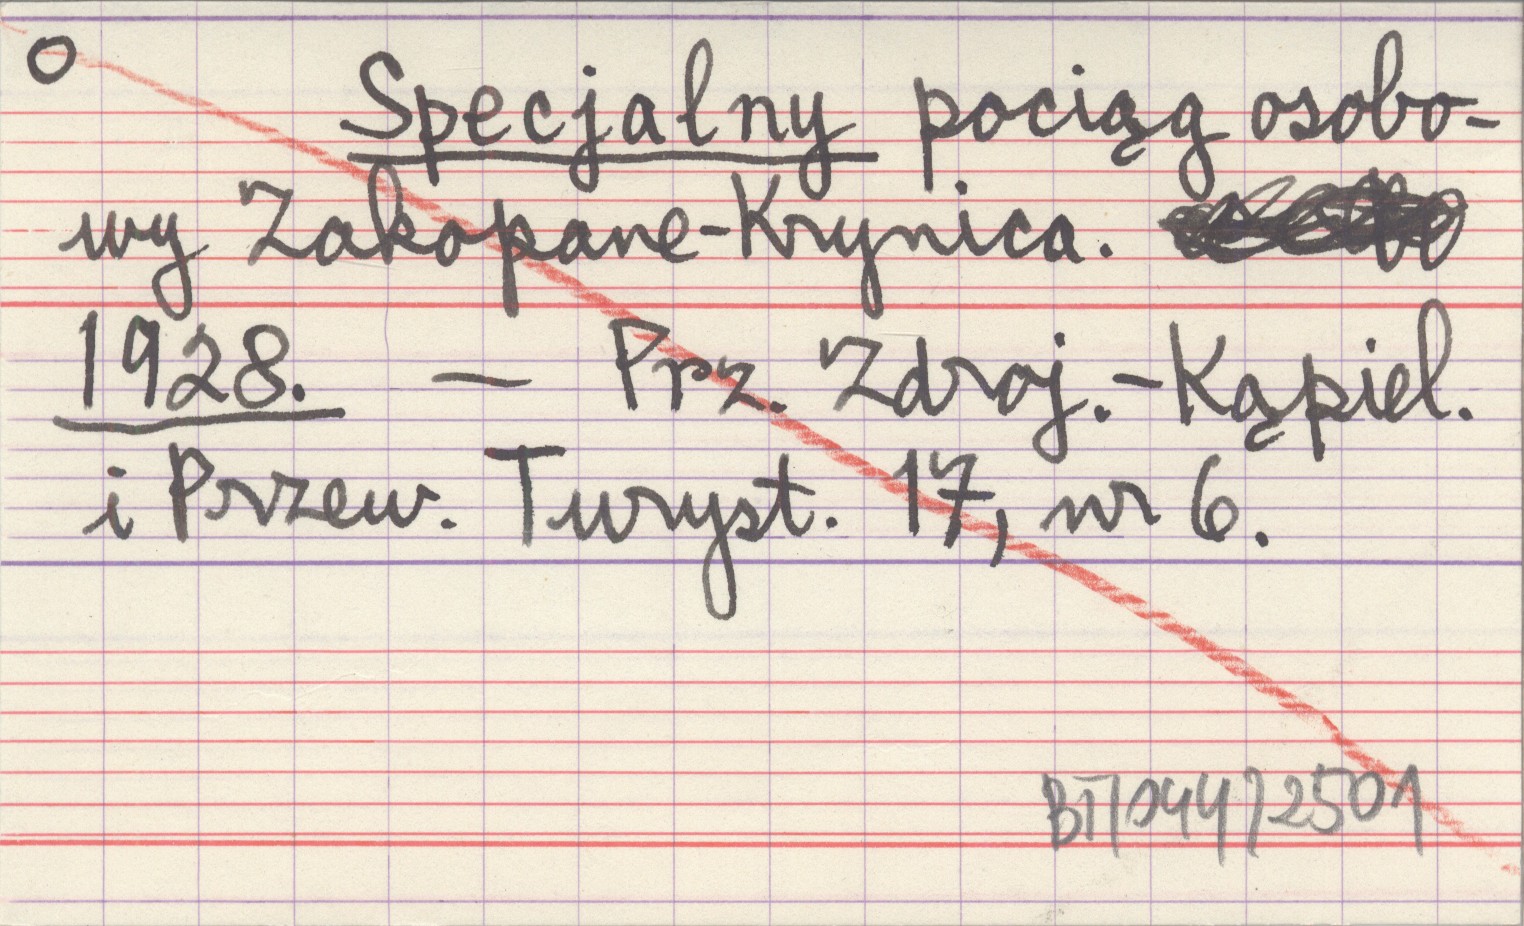 O
Specjalny pociąg osobo-
wy Zakopane-Krynica.
1928. — Prz. Zdroj.-Kąpiel.
i Przew. Turyst. 17, nr 6.
BT/044/2501